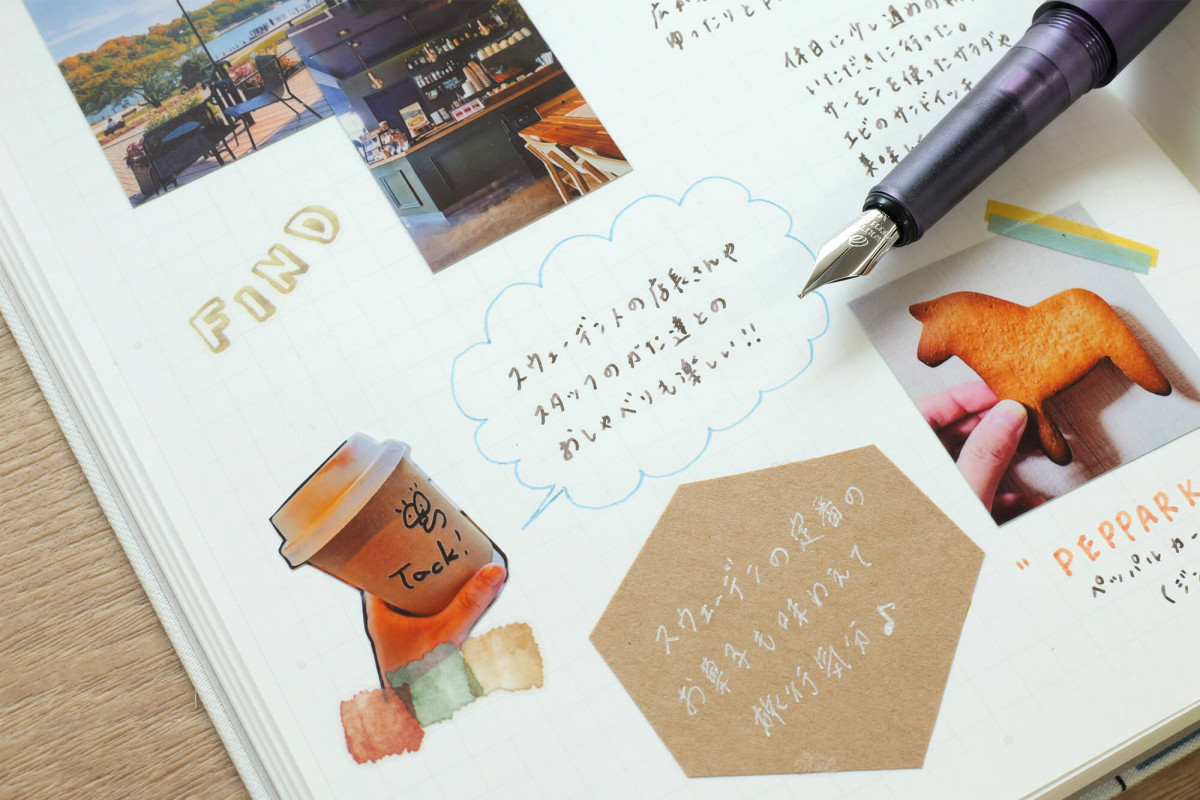 広が
ゆったりと
休日に少し遠めの
いただきに行った。
サーモンを使ったサラダや
エビのサンドイッチ
美味し
FIND
スウェーデン人の店長さんや
スタッフのかた達との
おしゃべりも楽しい!!
Tack!
スウェーデンの定番の
お菓子も味わえて
旅行気分♪
"PEPPARK
ペッパルカー
(ジン